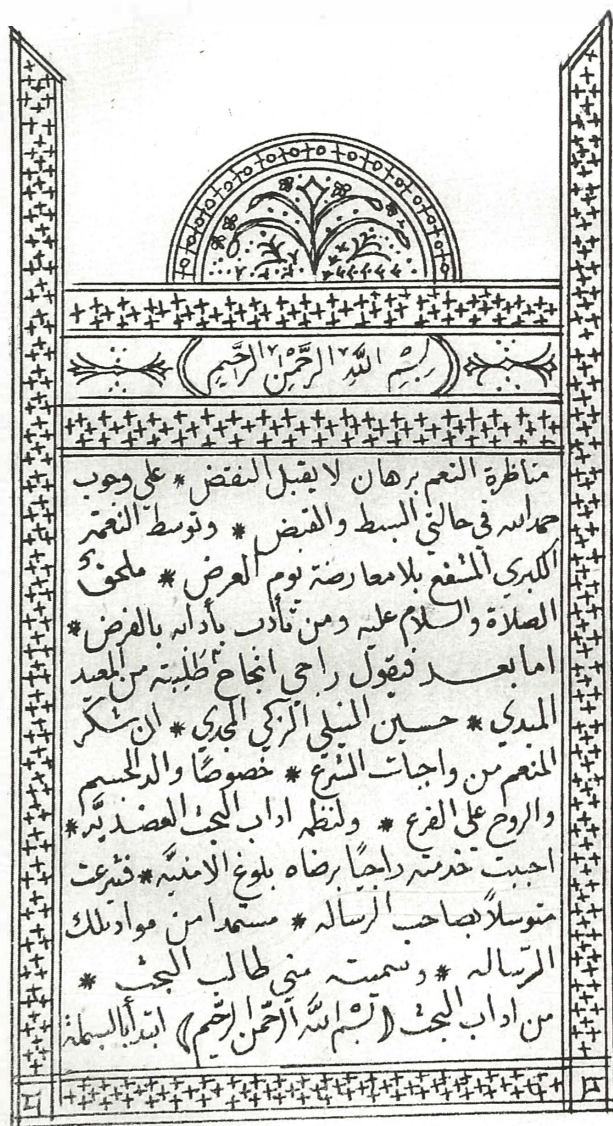 بِسْمِ اللَّهِ الرَّحْمٰنِ الرَّحِيمِ
مناظرة النعم برهان لا يقبل النقض * على وجوب
حمد الله فى حالتي البسط والقبض * وتوسط النعمة
الكبرى المشفع بلا معارضة يوم العرض * ملحق
الصلاة والسلام عليه ومن تأدب بأدابه بالفرض *
اما بعد فيقول راجي انجاح طلبته من المعيد
المبدي * حسين المجدي * ان شكر
المنعم من واجبات الشرع * خصوصًا والد الجسم
والروح على الفرع * ولنظمه اداب البحث العضديَّه *
احببت خدمته راجيًا برضاه بلوغ الامنيَّه * فشرعت
متوسلاً بصاحب الرساله * مستمدا من مواد تلك
الرساله * وسميته منى طالب البحث *
من اداب البحث (بسْم اللَّه الرَّحمن الرَّحيم) ابتدأ بالبسملة